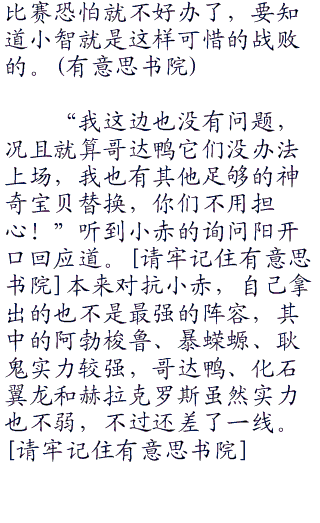 比赛恐怕就不好办了，要知
道小智就是这样可惜的战败
的。(有意思书院)
“我这边也没有问题，
况且就算哥达鸭它们没办法
上场，我也有其他足够的神
奇宝贝替换，你们不用担
心！”听到小赤的询问阳开
口回应道。[请牢记住有意思
书院]本来对抗小赤，自己拿
出的也不是最强的阵容，其
中的阿勃梭鲁、暴蝾螈、耿
鬼实力较强，哥达鸭、化石
翼龙和赫拉克罗斯虽然实力
也不弱，不过还差了一线。
[请牢记住有意思书院]